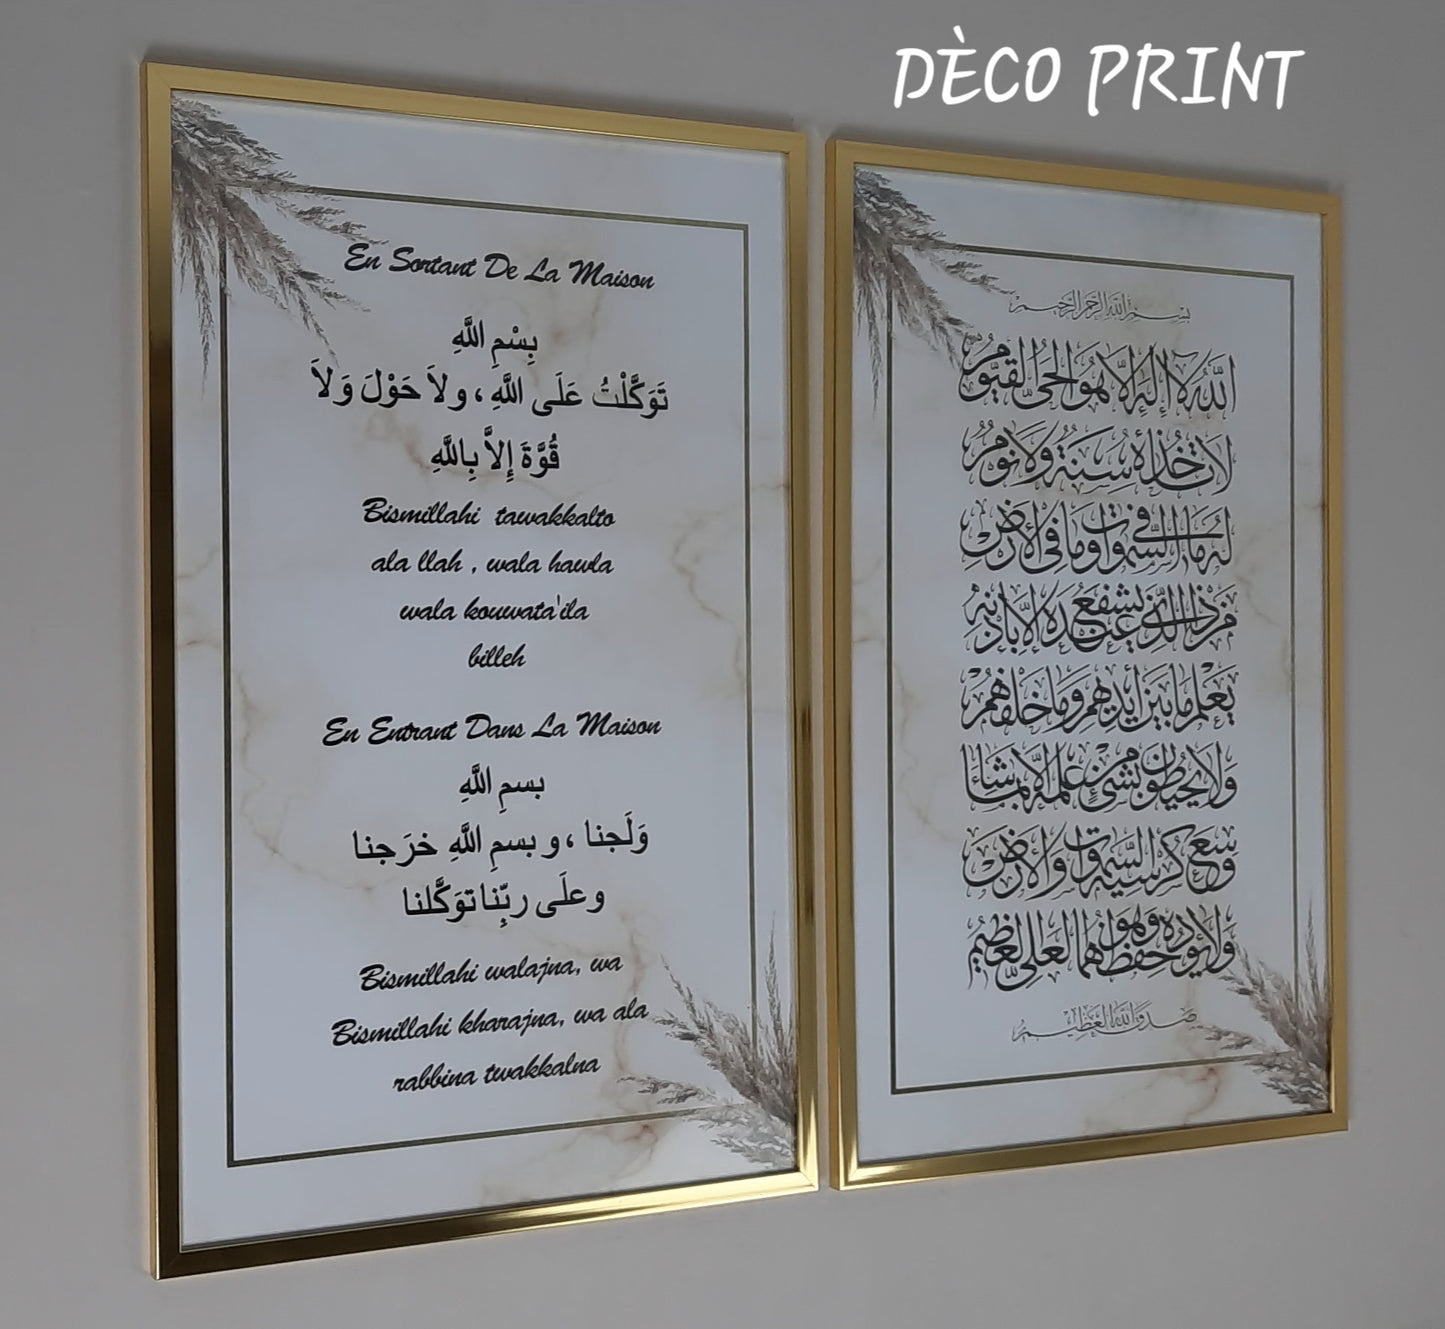 DÈCO PRINT
En Sortant De La Maison
بِسْمِ اللَّهِ
تَوَكَّلْتُ عَلَى اللَّهِ ، ولاَ حَوْلَ وَلاَ
قُوَّةَ إِلاَّ بِاللَّهِ
Bismillahi tawakkalto
ala llah , wala hawla
wala kouwata'ila
billeh
En Entrant Dans La Maison
بسمِ اللَّهِ
وَلَجنا ، و بسمِ اللَّهِ خرَجنا
وعلَى ربِّنا توَكَّلنا
Bismillahi walajna, wa
Bismillahi kharajna, wa ala
rabbina twakkalna
بسم الله الرحمن الرحيم
الله لا إله إلا هو الحي القيوم
لا تأخذه سنة ولا نوم
له ما في السموات وما في الأرض
من ذا الذي يشفع عنده إلا بإذنه
يعلم ما بين أيديهم وما خلفهم
ولا يحيطون بشيء من علمه إلا بما شاء
وسع كرسيه السموات والأرض
ولا يؤده حفظهما وهو العلي العظيم
صدق الله العظيم